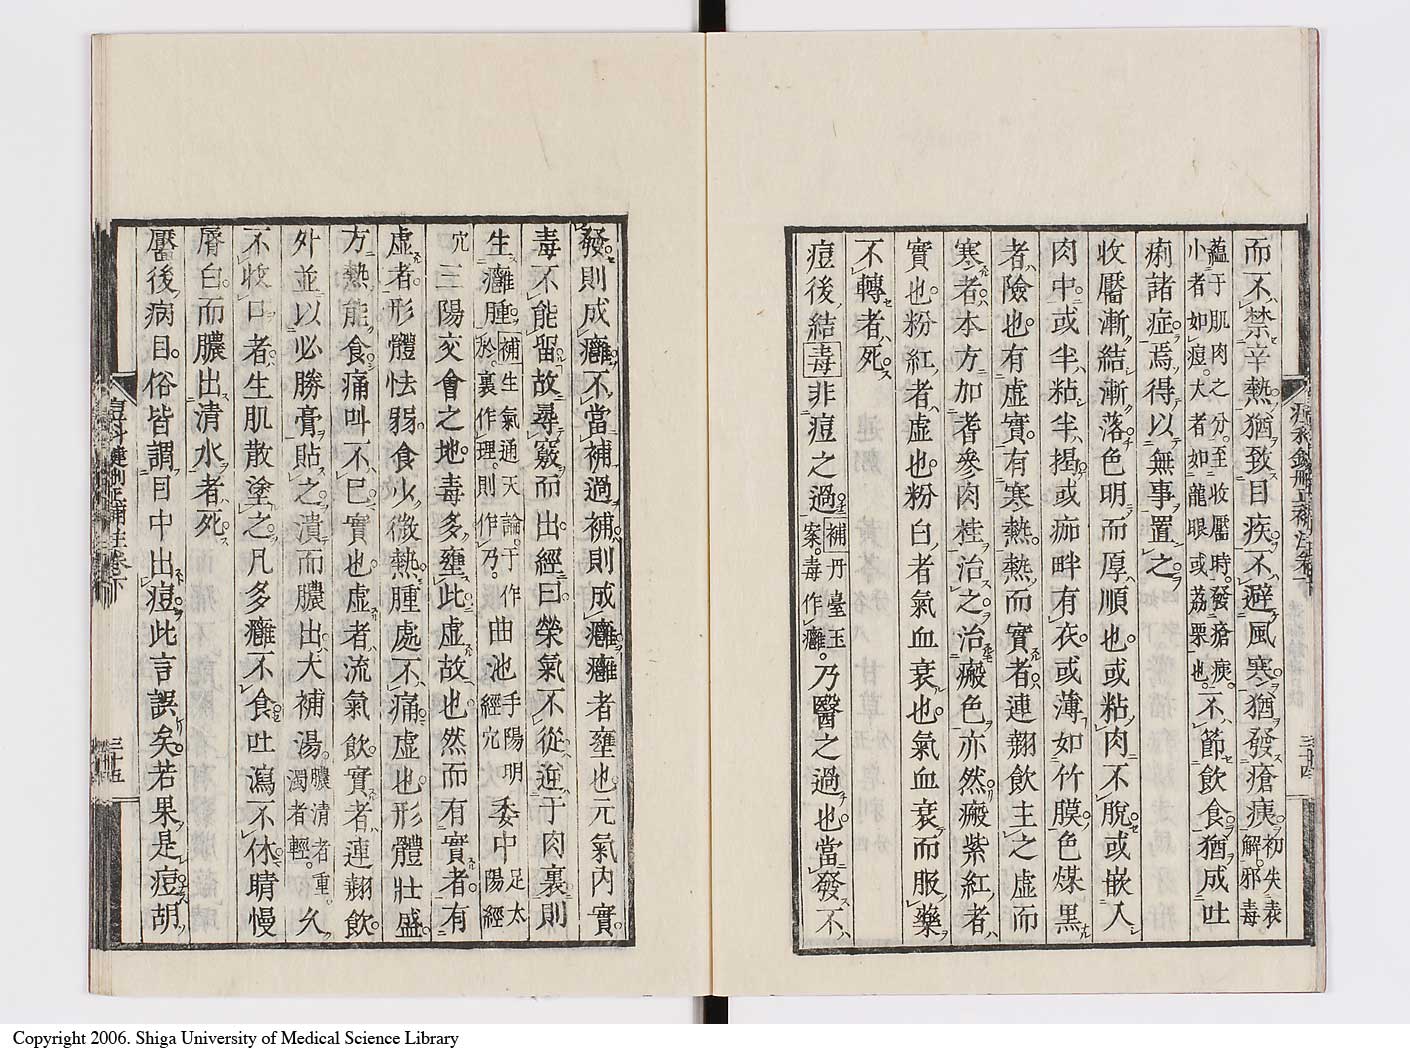 而不禁辛熱猶致目疾不避風寒猶發瘡痍初失表解邪毒
蘊于肌肉之分至收靨時發瘡痍小者如痘大者如龍眼或荔栗也不節飲食猶成吐
痢諸症焉得以無事置之
收靨漸結漸落色明而厚順也或粘肉不脫或嵌入
肉中或半粘半揑或痂畔有衣或薄如竹膜色煤黑
者險也有虛實有寒熱熱而實者連翹飲主之虛而
寒者本方加耆參肉桂治之治瘢色亦然瘢紫紅者
實也粉紅者虛也粉白者氣血衰也氣血衰而服藥
不轉者死
痘後結毒非痘之過補丹臺玉案毒作癰乃醫之過也當發不
發則成癰不當補過補則成癰癰者壅也元氣內實
毒不能留故尋竅而出經曰榮氣不從逆于肉裏則
生癰腫補生氣通天論于作於裏作理則作乃曲池手陽明經穴委中足太陽經
穴三陽交會之地毒多壅此虛故也然而有實者有
虛者形體怯弱食少微熱腫處不痛虛也形體壯盛
方熱能食痛叫不已實也虛者流氣飲實者連翹飲
外並以必勝膏貼之潰而膿出大補湯膿清者重濁者輕久
不收口者生肌散塗之凡多癰不食吐瀉不休睛慢
脣白而膿出清水者死
靨後病目俗皆謂目中出痘此言誤矣若果是痘胡
痘科鍵刪正補註卷下
三十五
三十四
Copyright 2006. Shiga University of Medical Science Library